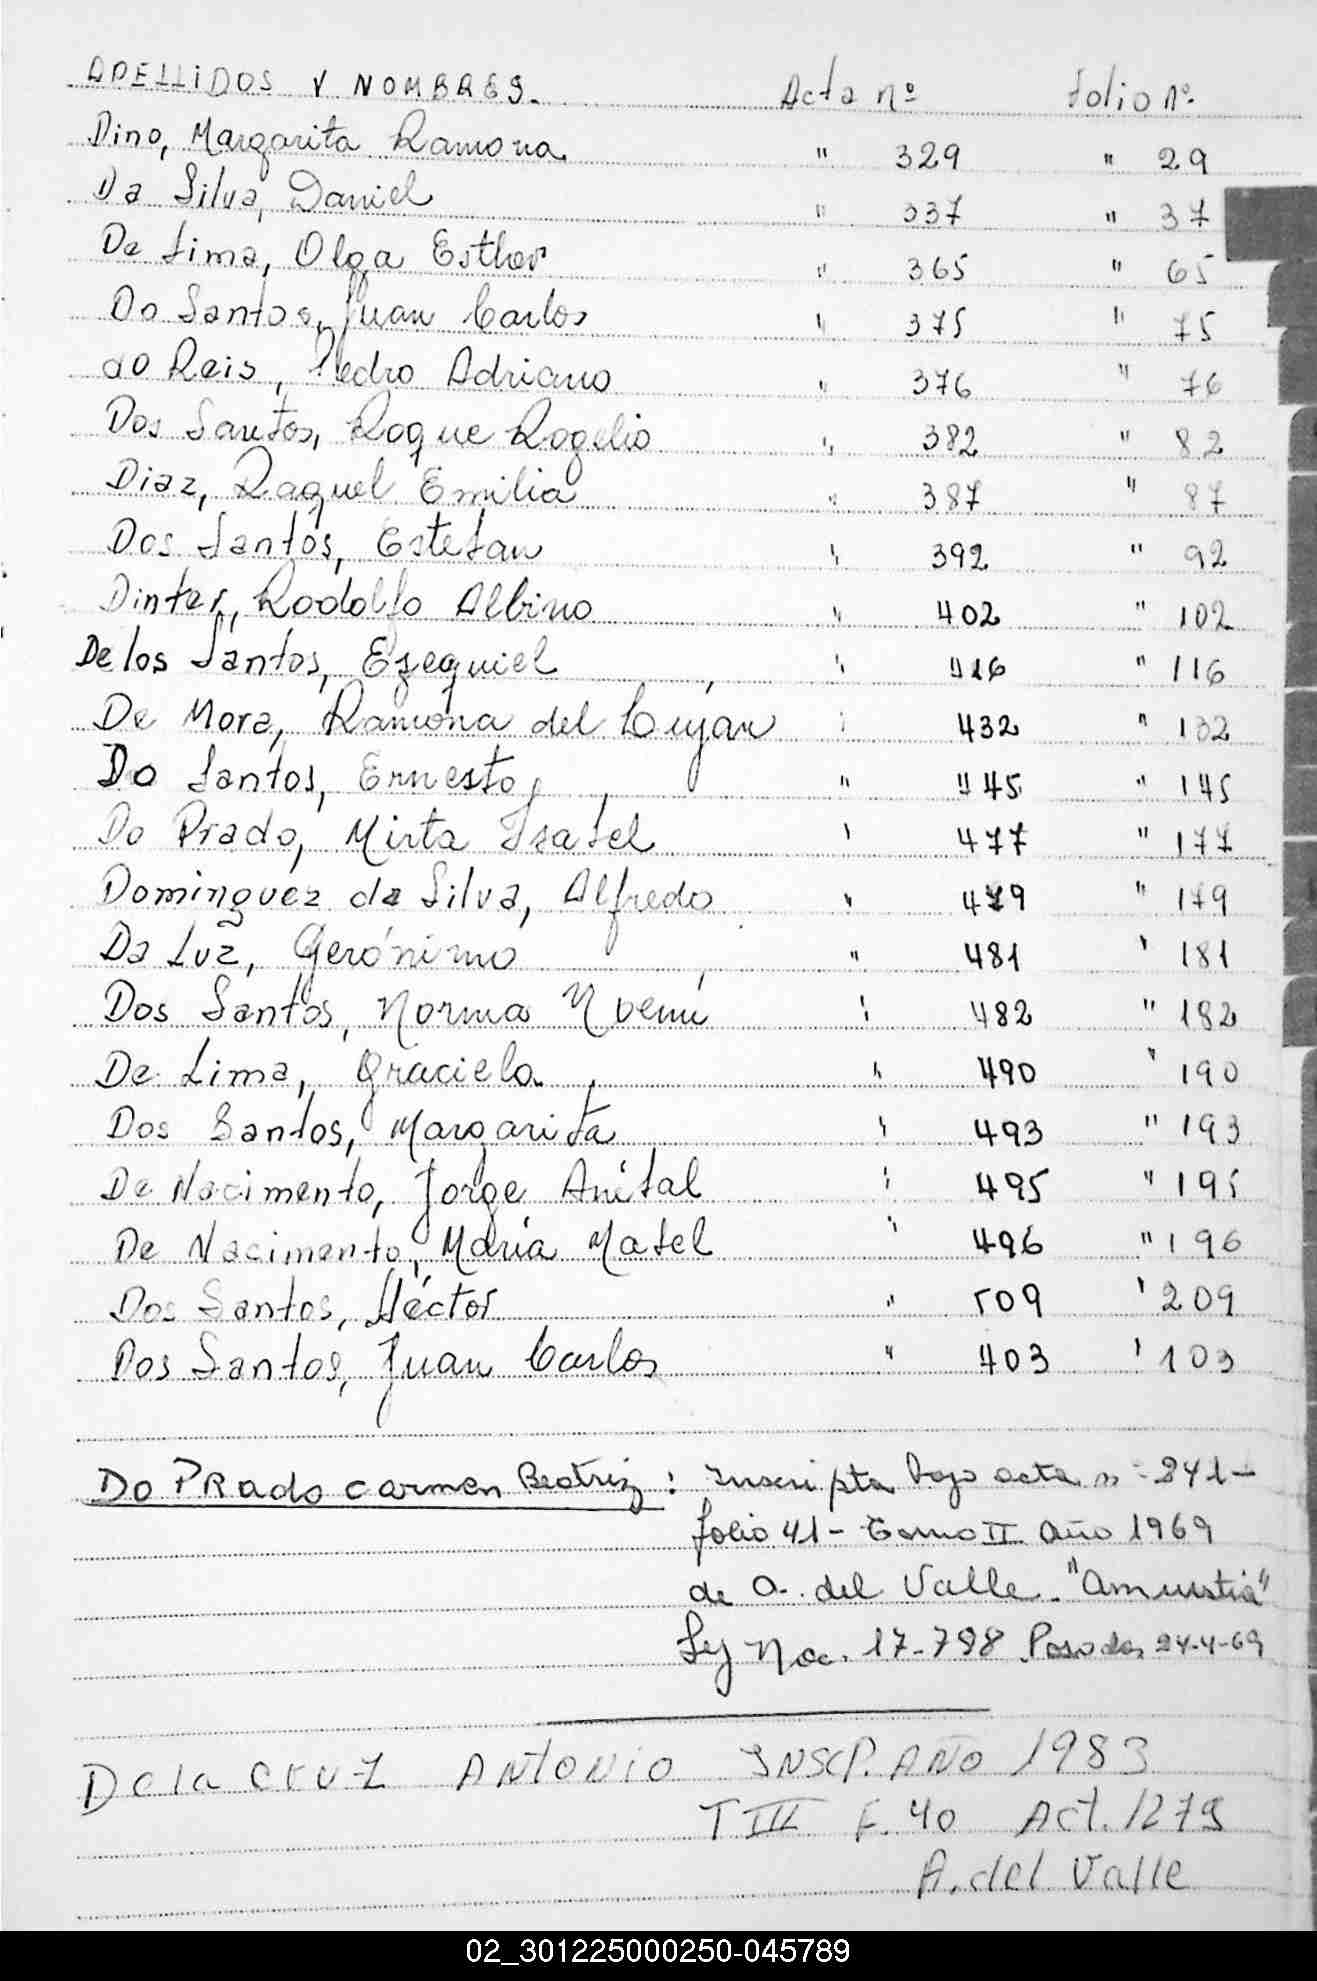 APELLIDOS Y NOMBRES. Acta nº Folio nº.
Dino, Margarita Ramona " 329 " 29
Da Silva, Daniel " 337 " 37
De Lima, Olga Esther " 365 " 65
Do Santos, Juan Carlos " 375 " 75
do Reis, Pedro Adriano " 376 " 76
Dos Santos, Roque Rogelio " 382 " 82
Diaz, Raquel Emilia " 387 " 87
Dos Santos, Esteban " 392 " 92
Dinter, Rodolfo Albino " 402 " 102
De los Santos, Ezequiel " 416 " 116
De Mora, Ramona del Lujan " 432 " 132
Do Santos, Ernesto " 445 " 145
Do Prado, Mirta Isabel " 477 " 177
Dominguez da Silva, Alfredo " 479 " 179
Da Luz, Gerónimo " 481 " 181
Dos Santos, Norma Noemí " 482 " 182
De Lima, Graciela " 490 " 190
Dos Santos, Margarita " 493 " 193
De Nacimento, Jorge Anibal " 495 " 195
De Nacimento, María Mabel " 496 " 196
Dos Santos, Héctor " 509 " 209
Dos Santos, Juan Carlos " 403 " 103
Do PRado Carmen Beatriz : Inscripta bajo acta nº 241-
folio 41 - Tomo II año 1969
de A. del Valle. "Amnistia"
Ley Nac. 17-798 Posadas 24-4-69
De la CRUZ ANTONIO INSCP. AÑO 1983
T III F. 40 Act. 1279
A. del Valle
02_301225000250-045789